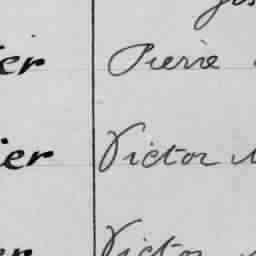 er Pierre
ier Victor
er Victor